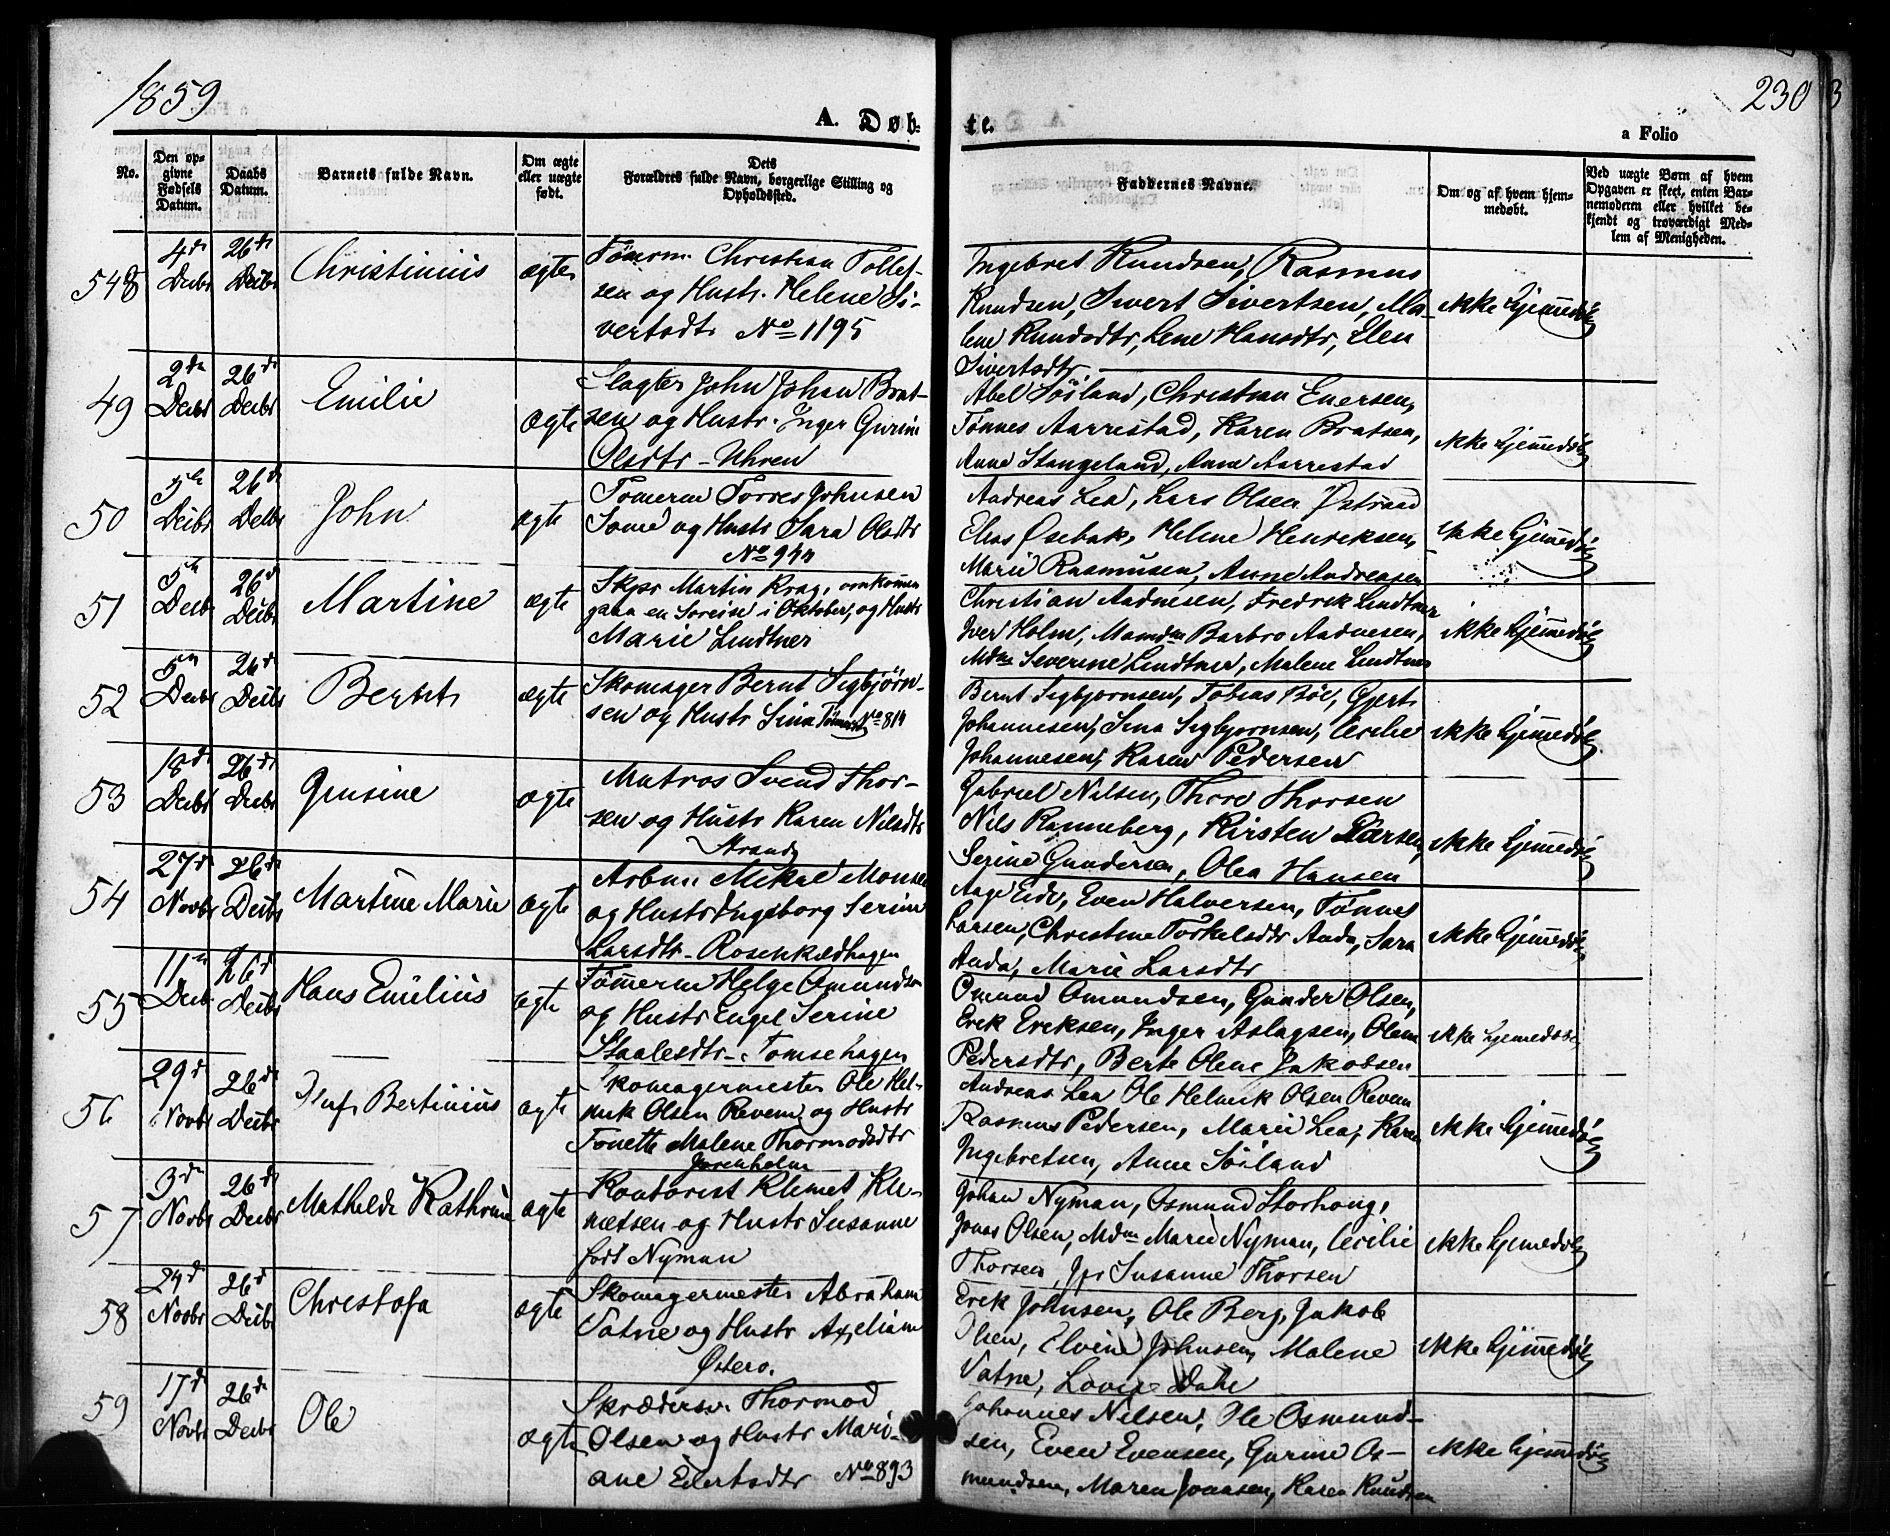 1859
A. Døb-
te.
230
a Folio
No.
Den op-
givne
Fødsels
Datum.
Daabs
Datum.
Barnets fulde Navn.
Om ægte
eller uægte
født.
Dets
Forældres fulde Navn, borgerlige Stilling og
Opholdssted.
Faddernes Navne.
Om og af hvem hjem-
medøbt.
Ved uægte Børn af hvem
Opgaven er skeet, enten Bar-
nemoderen eller hvilket be-
kjendt og troværdigt Med-
lem af Menigheden.
548
4de Decbr
26de Decbr
Christinius
ægte
Tømrm. Christian Tollef-
sen og Hustr. Helene Si-
vertsdtr No 1195
Ingebret Knudsen, Rasmus
Knudsen, Sivert Sivertsen, Ma-
lene Knudsdtr, Lene Hansdtr, Elen
Sivertsdtr.
ikke hjemmedøbt
49
2den Decbr
26de Decbr
Emilie
ægte
Slagter John Johan Brat-
sen og Hustr. Inger Gurine
Olsdtr - Uhren
Abel Søiland, Christian Enersen,
Tønnes Aarrestad, Karen Bratsen,
Anne Stangeland, Anne Aarrestad
ikke hjemmedøbt
50
5te Decbr
26de Decbr
John
ægte
Tømerm Torres Johnsen
Some og Hustr Sara Olsdtr
No 944
Andreas Lea, Lars Olsen Østraad
Elias Øsebak, Helene Henriksen,
Marie Rasmusen, Anne Andreasen
ikke hjemmedøbt
51
5te Decbr
26de Decbr
Martine
ægte
Skpr Martin Krag, omkommen
paa en Soreise i Oktober, og Hustr
Marie Lindtner
Christian Aadnesen, Fredrik Lindtner
Iver Holm, Mamdm Barbro Aadnesen,
Mdm Severine Lindtner, Malene Lindtner
ikke hjemmedøbt
52
5te Decbr
26de Decbr
Bertet
ægte
Skomager Bernt Sigbjørn-
sen og Hustr Sina No 814
Bernt Sigbjornsen, Tobias Bøe, Gjert
Johannesen, Sina Sigbjornsen, Cecilie
Johannesen, Karen Pedersen
ikke hjemmedøbt
53
18de Decbr
26de Decbr
Gusine
ægte
Matros Svend Thor-
sen og Hustr Karen Nilsdtr
Strand
Gabriel Nilsen, Thore Thorsen
Nils Ranneberg, Kirsten Larsen,
Serine Gundersen, Olea Hansen
ikke hjemmedøbt
54
27de Novbr
26de Decbr
Martine Marie
ægte
Arbm. Mikal Monsen
og Hustr Ingeborg Serine
Larsdtr - Rosenkædhagen
Aage Eide, Even Halversen, Tønnes
Larsen, Christine Torkelsdtr Anda, Sara
Anda, Marie Larsdtr
ikke hjemmedøbt
55
11te Decb
26de Decbr
Hans Emilius
ægte
Tømmerm Helge Omundsen
og Hustr Engel Serine
Staalesdtr - Tomsehagen
Omund Omundsen, Gunder Olsen,
Erik Eriksen, Inger Aslagsen, Olene
Pedersdtr, Berte Oline Jakobsen
ikke hjemmedøbt
56
29de Novbr
26de Decbr
Oluf Bertinius
ægte
Skomagermester Ole Hel-
mik Olsen Revem og Hustr
Tonette Malene Thormodsdtr
Jorenholm
Andreas Lea Ole Helmik Olsen Revem
Rasmus Pedersen, Marie Lea, Karen
Ingebretsen, Anne Søiland
ikke hjemmedøbt
57
3de Novbr
26de Decbr
Mathilde Kathrine
ægte
Kontorist Klemet Kle-
metsen og Hustr Susanne
født Nyman
Johan Nyman, Osmund Storhoug,
Jonas Olsen, Mdm Marie Nyman, Cecilie
Thorsen, Jfr Susanne Thorsen
ikke hjemmedøbt
58
24de Novbr
26de Decbr
Christofa
ægte
Skomagermester Abraham
Vatne og Hustr Axeliane
Østero.
Erik Johnsen, Ole Berg, Jakob
Olsen, Elvine Johnsen, Malene
Vatne, Lovise Dahl
ikke hjemmedøbt
59
17de Novbr
26de Decbr
Ole
ægte
Skrædersv. Thormod
Olsen og Hustr Mari-
ane Eilertsdtr No 893
Johannes Nilsen, Ole Osmund-
sen, Even Evensen, Gurine Os-
mundsen, Maren Jonasen, Karen Knudsen
ikke hjemmedøbt